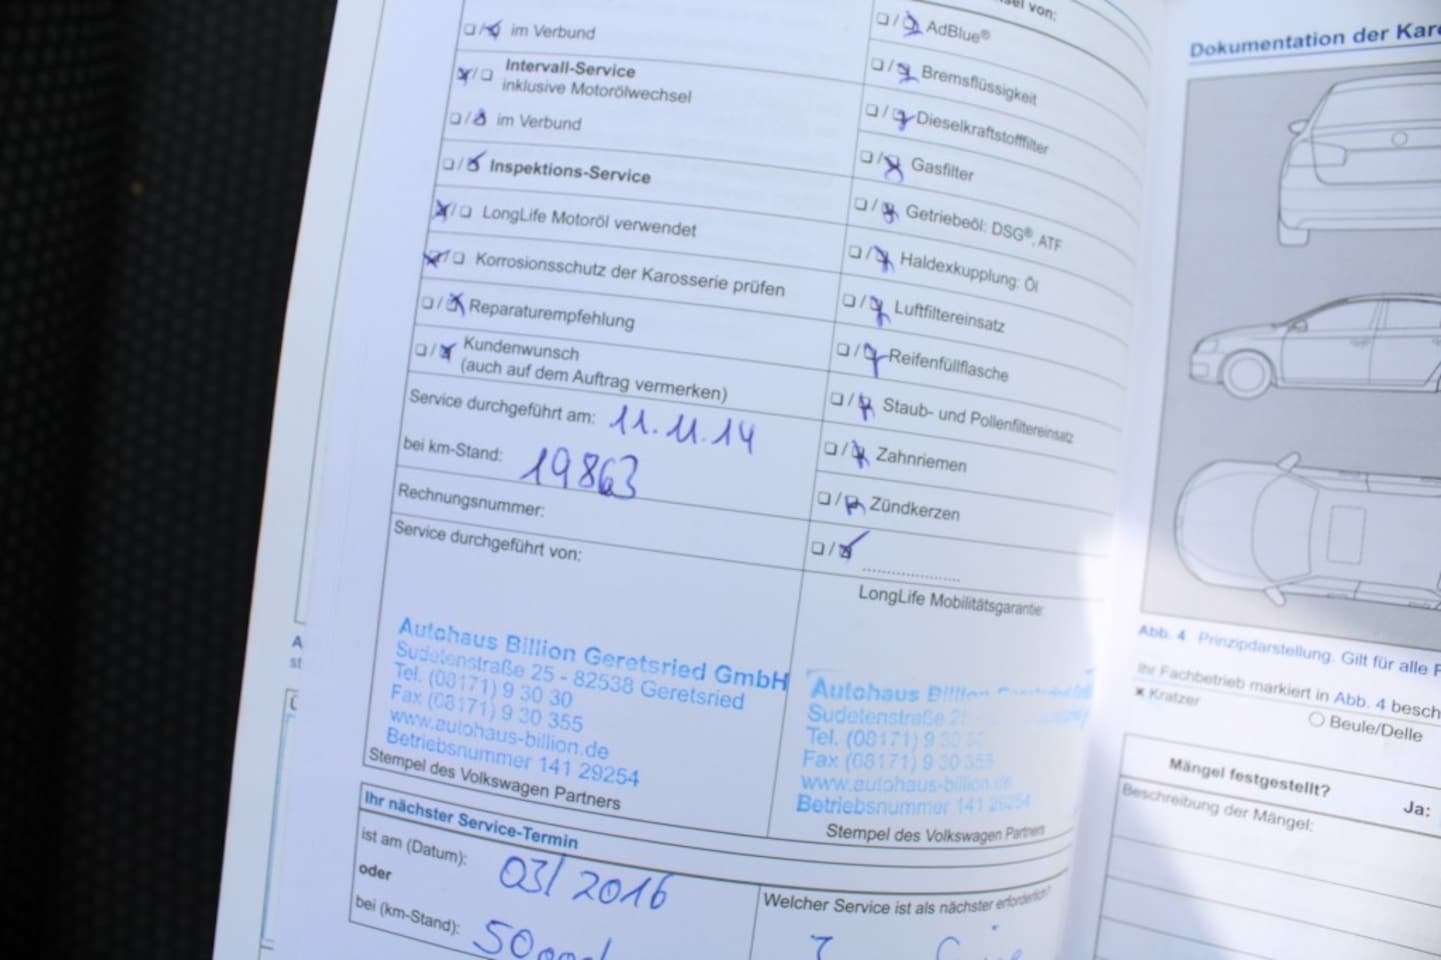 ❏/❏ im Verbund
❏/❏ Intervall-Service
inklusive Motorölwechsel
❏/❏ im Verbund
❏/❏ Inspektions-Service
❏/❏ LongLife Motoröl verwendet
❏/❏ Korrosionsschutz der Karosserie prüfen
❏/❏ Reparaturempfehlung
❏/❏ Kundenwunsch
(auch auf dem Auftrag vermerken)
Service durchgeführt am: 11.11.14
bei km-Stand: 19863
Rechnungsnummer:
Service durchgeführt von:
Autohaus Billion Geretsried GmbH
Sudetenstraße 25 - 82538 Geretsried
Tel. (08171) 9 30 30
Fax (08171) 9 30 355
www.autohaus-billion.de
Betriebsnummer 141 29254
Stempel des Volkswagen Partners
Ihr nächster Service-Termin
ist am (Datum): 03/2016
oder
bei (km-Stand):
von:
❏/❏ AdBlue®
❏/❏ Bremsflüssigkeit
❏/❏ Dieselkraftstofffilter
❏/❏ Gasfilter
❏/❏ Getriebeöl: DSG®, ATF
❏/❏ Haldexkupplung: Öl
❏/❏ Luftfiltereinsatz
❏/❏ Reifenfüllflasche
❏/❏ Staub- und Pollenfiltereinsatz
❏/❏ Zahnriemen
❏/❏ Zündkerzen
❏/❏ ....................
LongLife Mobilitätsgarantie:
Autohaus Billion
Sudetenstraße
Tel. (08171) 9 30
Fax (08171) 9 30 355
www.autohaus-billion.de
Betriebsnummer 141 29254
Stempel des Volkswagen Partners
Welcher Service ist als nächster erforderlich?
Dokumentation der
Abb. 4 Prinzipdarstellung. Gilt für alle
Ihr Fachbetrieb markiert in Abb. 4
× Kratzer
○ Beule/Delle
Mängel festgestellt?
Ja:
Beschreibung der Mängel: